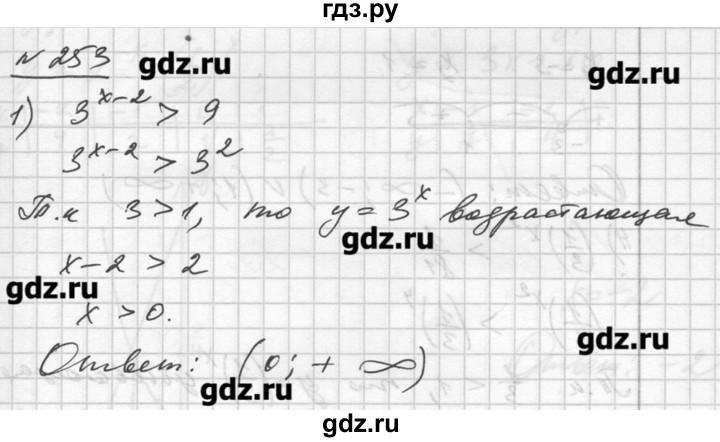 гдз.ру
№ 253
gdz.ru
gdz.ru
1) 3^{x-2} > 9
3^{x-2} > 3^2
Т.к 3>1, то y = 3^x возрастающая
gdz.ru
x-2 > 2
gdz.ru
x > 0.
gdz.ru
Ответ: (0; + ∞)
gdz.ru
gdz.ru